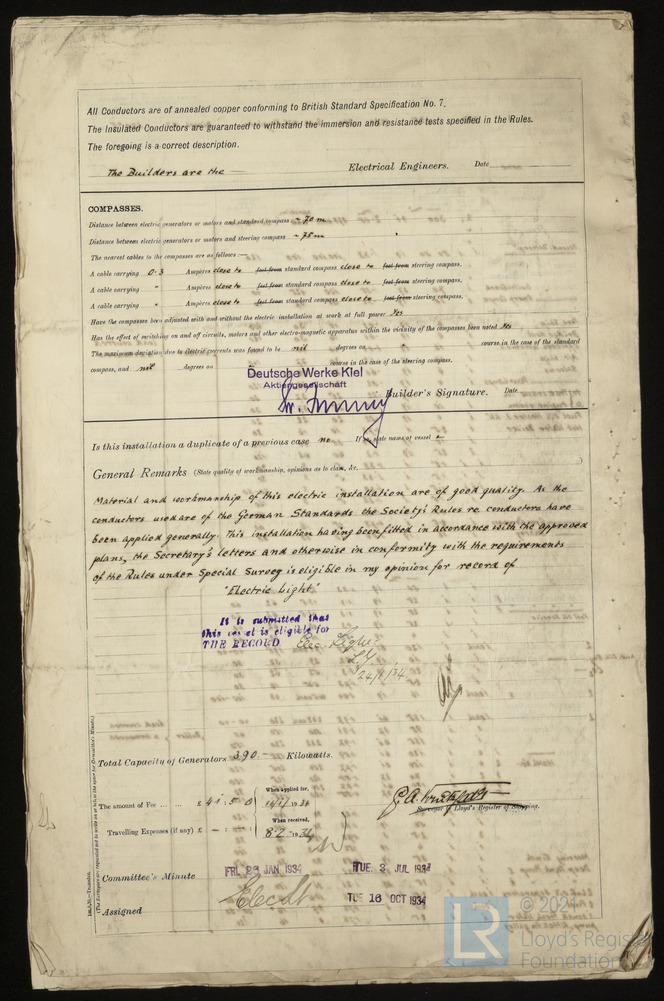 All Conductors are of annealed copper conforming to British Standard Specification No. 7.
The Insulated Conductors are guaranteed to withstand the immersion and resistance tests specified in the Rules.
The foregoing is a correct description.
The Builders are the Electrical Engineers. Date
COMPASSES.
Distance between electric generators or motors and standard compass ~ 70 m
Distance between electric generators or motors and steering compass ~ 75 m
The nearest cables to the compasses are as follows:—
A cable carrying 0.3 Ampères close to feet from standard compass close to feet from steering compass.
A cable carrying " Ampères close to feet from standard compass close to feet from steering compass.
A cable carrying " Ampères close to feet from standard compass close to feet from steering compass.
Have the compasses been adjusted with and without the electric installation at work at full power Yes
Has the effect of switching on and off circuits, motors and other electro-magnetic apparatus within the vicinity of the compasses been noted Yes
The maximum deviation due to electric currents was found to be nil degrees on course in the case of the standard
compass, and nil degrees on course in the case of the steering compass.
Deutsche Werke Kiel
Aktiengesellschaft
Builder's Signature. Date
Is this installation a duplicate of a previous case no If so, state name of vessel —
General Remarks (State quality of workmanship, opinions as to class, &c.
Material and workmanship of this electric installation are of good quality. As the
conductors used are of the German Standards the Society's Rules re conductors have
been applied generally. This installation having been fitted in accordance with the approved
plans, the Secretary's letters and otherwise in conformity with the requirements
of the Rules under Special Survey is eligible in my opinion for record of
"Electric Light"
It is submitted that
this vessel is eligible for
THE RECORD Elec. Light
24/1/34
Total Capacity of Generators 390.— Kilowatts.
The amount of Fee ... ... £ 41 : 5 : 0 When applied for, 19 34
Travelling Expenses (if any) £ — : — : When received, 8.2. 19 34
Surveyor to Lloyd's Register of Shipping.
Committee's Minute FRI. 26 JAN 1934 TUE. 3 JUL 1934
Elec Lt
Assigned TUE 16 OCT 1934
(The Surveyors are requested not to write on or below the space for Committee's Minute.)
© 2021
LR Lloyd's Register
Foundation